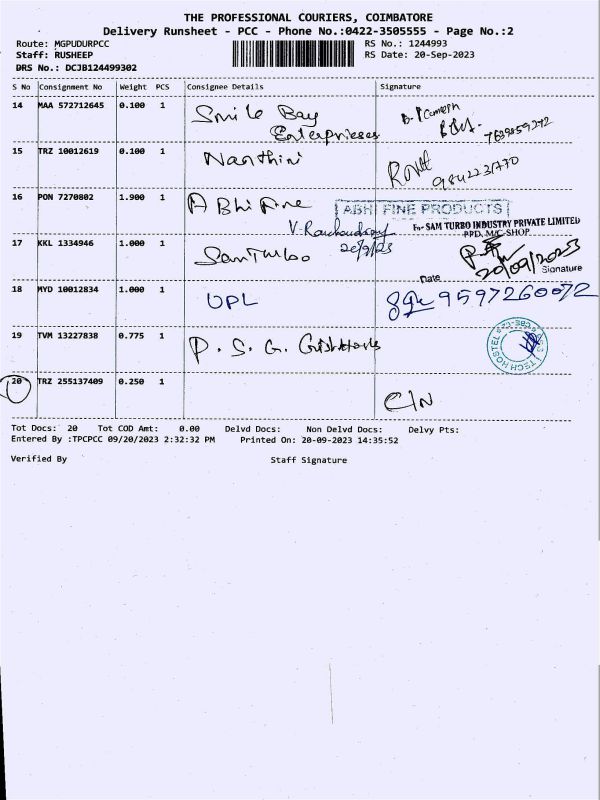 THE PROFESSIONAL COURIERS, COIMBATORE
Delivery Runsheet - PCC - Phone No.:0422-3505555 - Page No.:2
Route: MGPUDURPCC
RS No.: 1244993
Staff: RUSHEEP
RS Date: 20-Sep-2023
DRS No.: DCJB124499302
S No Consignment No Weight PCS Consignee Details Signature
14 MAA 572712645 0.100 1 Smile Bay
Enterprieses
15 TRZ 10012619 0.100 1 Nanthini
16 PON 7270802 1.900 1 A Bhi Fine ABHI FINE PRODUCTS
20/9/23
For SAM TURBO INDUSTRY PRIVATE LIMITED
PPD, M/C SHOP
17 KKL 1334946 1.000 1 Sam Turbo
20/09/2023
Date Signature
18 MYD 10012834 1.000 1 UPL 9597260072
19 TVM 13227838 0.775 1 P. S. G.
TECH HOSTEL
20 TRZ 255137409 0.250 1
C/N
Tot Docs: 20 Tot COD Amt: 0.00 Delvd Docs: Non Delvd Docs: Delvy Pts:
Entered By :TPCPCC 09/20/2023 2:32:32 PM Printed On: 20-09-2023 14:35:52
Verified By Staff Signature